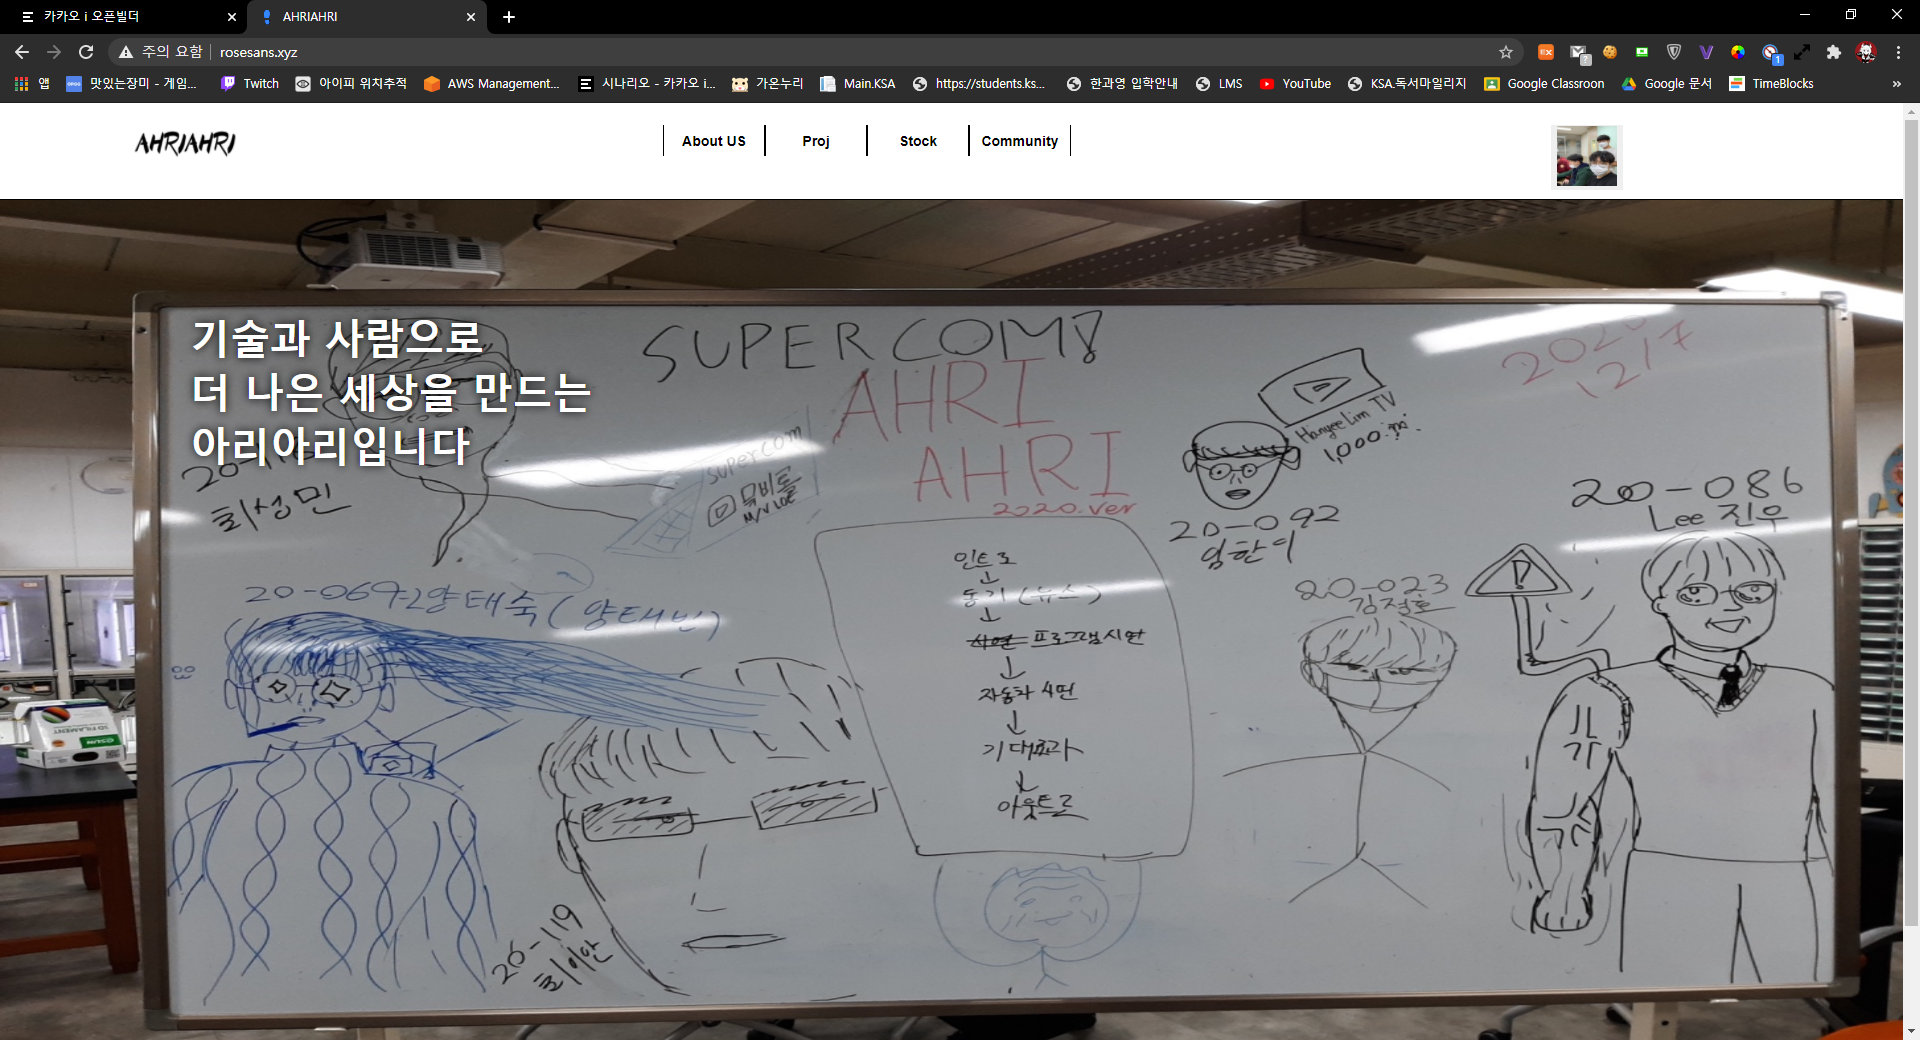 카카오 i 오픈빌더
AHRIAHRI
주의 요함
rosesans.xyz
앱
맛있는장미 - 게임...
Twitch
아이피 위치추적
AWS Management...
시나리오 - 카카오 i...
가온누리
Main.KSA
https://students.ks...
한과영 입학안내
LMS
YouTube
KSA.독서마일리지
Google Classroon
Google 문서
TimeBlocks
AHRIAHRI
About US
Proj
Stock
Community
기술과 사람으로
더 나은 세상을 만드는
아리아리입니다
SUPERCOM!
AHRI
AHRI
2020.ver
2020
1217
Hanyeelim TV
1,000
supercom
뮤비툴
최성민
20-092
임한이
20-086
Lee 진우
20-023
김정호
20-069 양태숙 (양태빈)
인트로
동기 (뉴스)
시연 프로그램시연
자동차 시연
기대효과
아웃트로
20-119
최이안